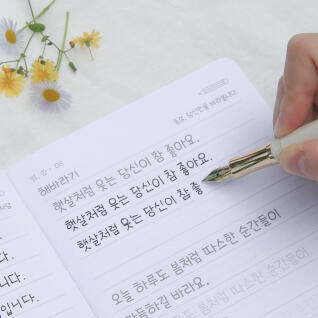 해바라기
햇살처럼 웃는 당신이 참 좋아요.
햇살처럼 웃는 당신이 참 좋아요.
햇살처럼 웃는 당신이 참 좋
오늘 하루도 봄처럼 따스한 순간들이
가득하길 바라요.
봄처럼 따스한 순간들이
니다.
니다.
입니다.